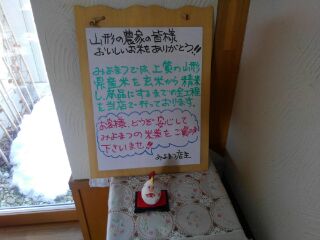 山形の農家の皆様
おいしいお米をありがとう!!
みよまつでは、上質の山形
県産米を玄米から精米
し、商品にするまでの全工程
を当店で行っております。
お客様、どうぞ安心して
みよまつの米菓をご賞味
下さいませ!!
みよまつ店主